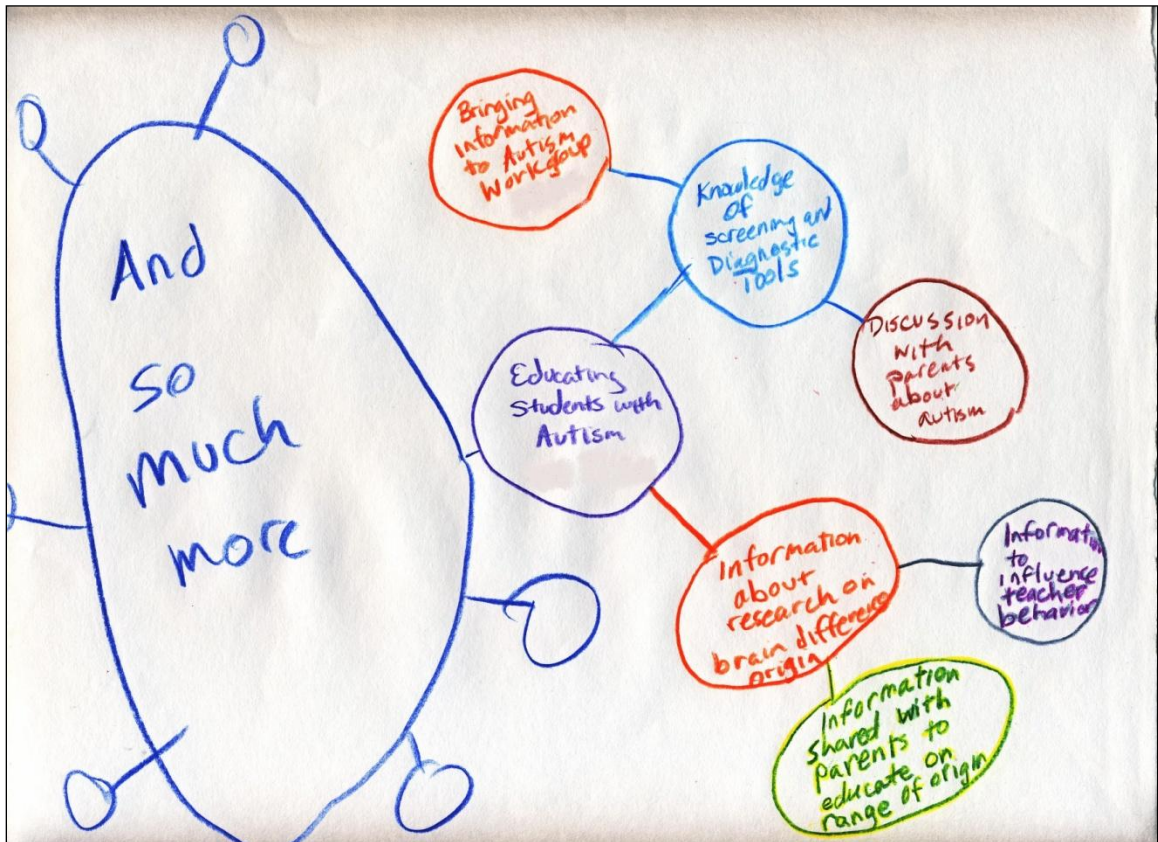 And
so
much
more
Bringing
Information
to Autism
Workgroup
Knowledge
of
screening and
Diagnostic
Tools
Discussion
with
parents
about
autism
Educating
Students with
Autism
Information
about
research on
brain difference
origin
Information
to
influence
teacher
behavior
Information
shared with
parents to
educate on
range of origin